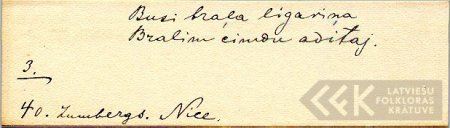 Busi brāļa līgaviņa
Bralim cimdu adītaj.
3.
40. Zumbergs. Nīce.
LATVIEŠU
FOLKLORAS
KRĀTUVE